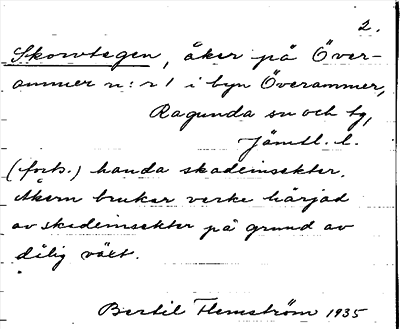 2.
Skowtegen, åker på Över-
ammer n:r 1 i byn Överammer,
Ragunda sn och tg,
Jämtl. l.
(forts.) handa skadeinsekter.
Åkern bruker verke härjad
av skadeinsekter på grund av
dålig växt.
Bertil Flemström 1935